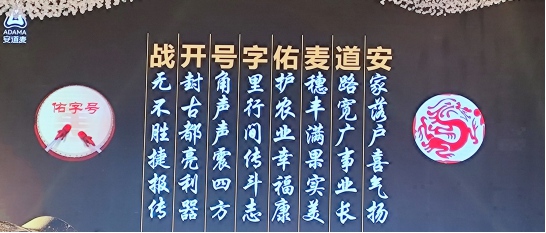 ADAMA
安道麦
安家落户喜气扬
道路宽广事业长
麦穗丰满果实美
佑护农业幸福康
字里行间传斗志
号角声声震四方
开封古都亮利器
战无不胜捷报传
佑字号